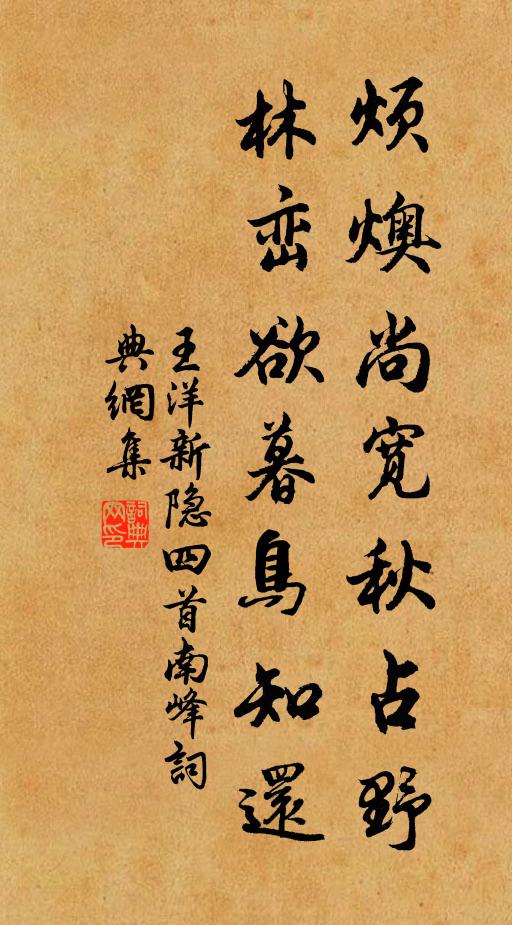 烦燠尚宽秋占野
林峦欲暮鳥知還
王洋新隐四首南峰詞
典網集
詞典网印